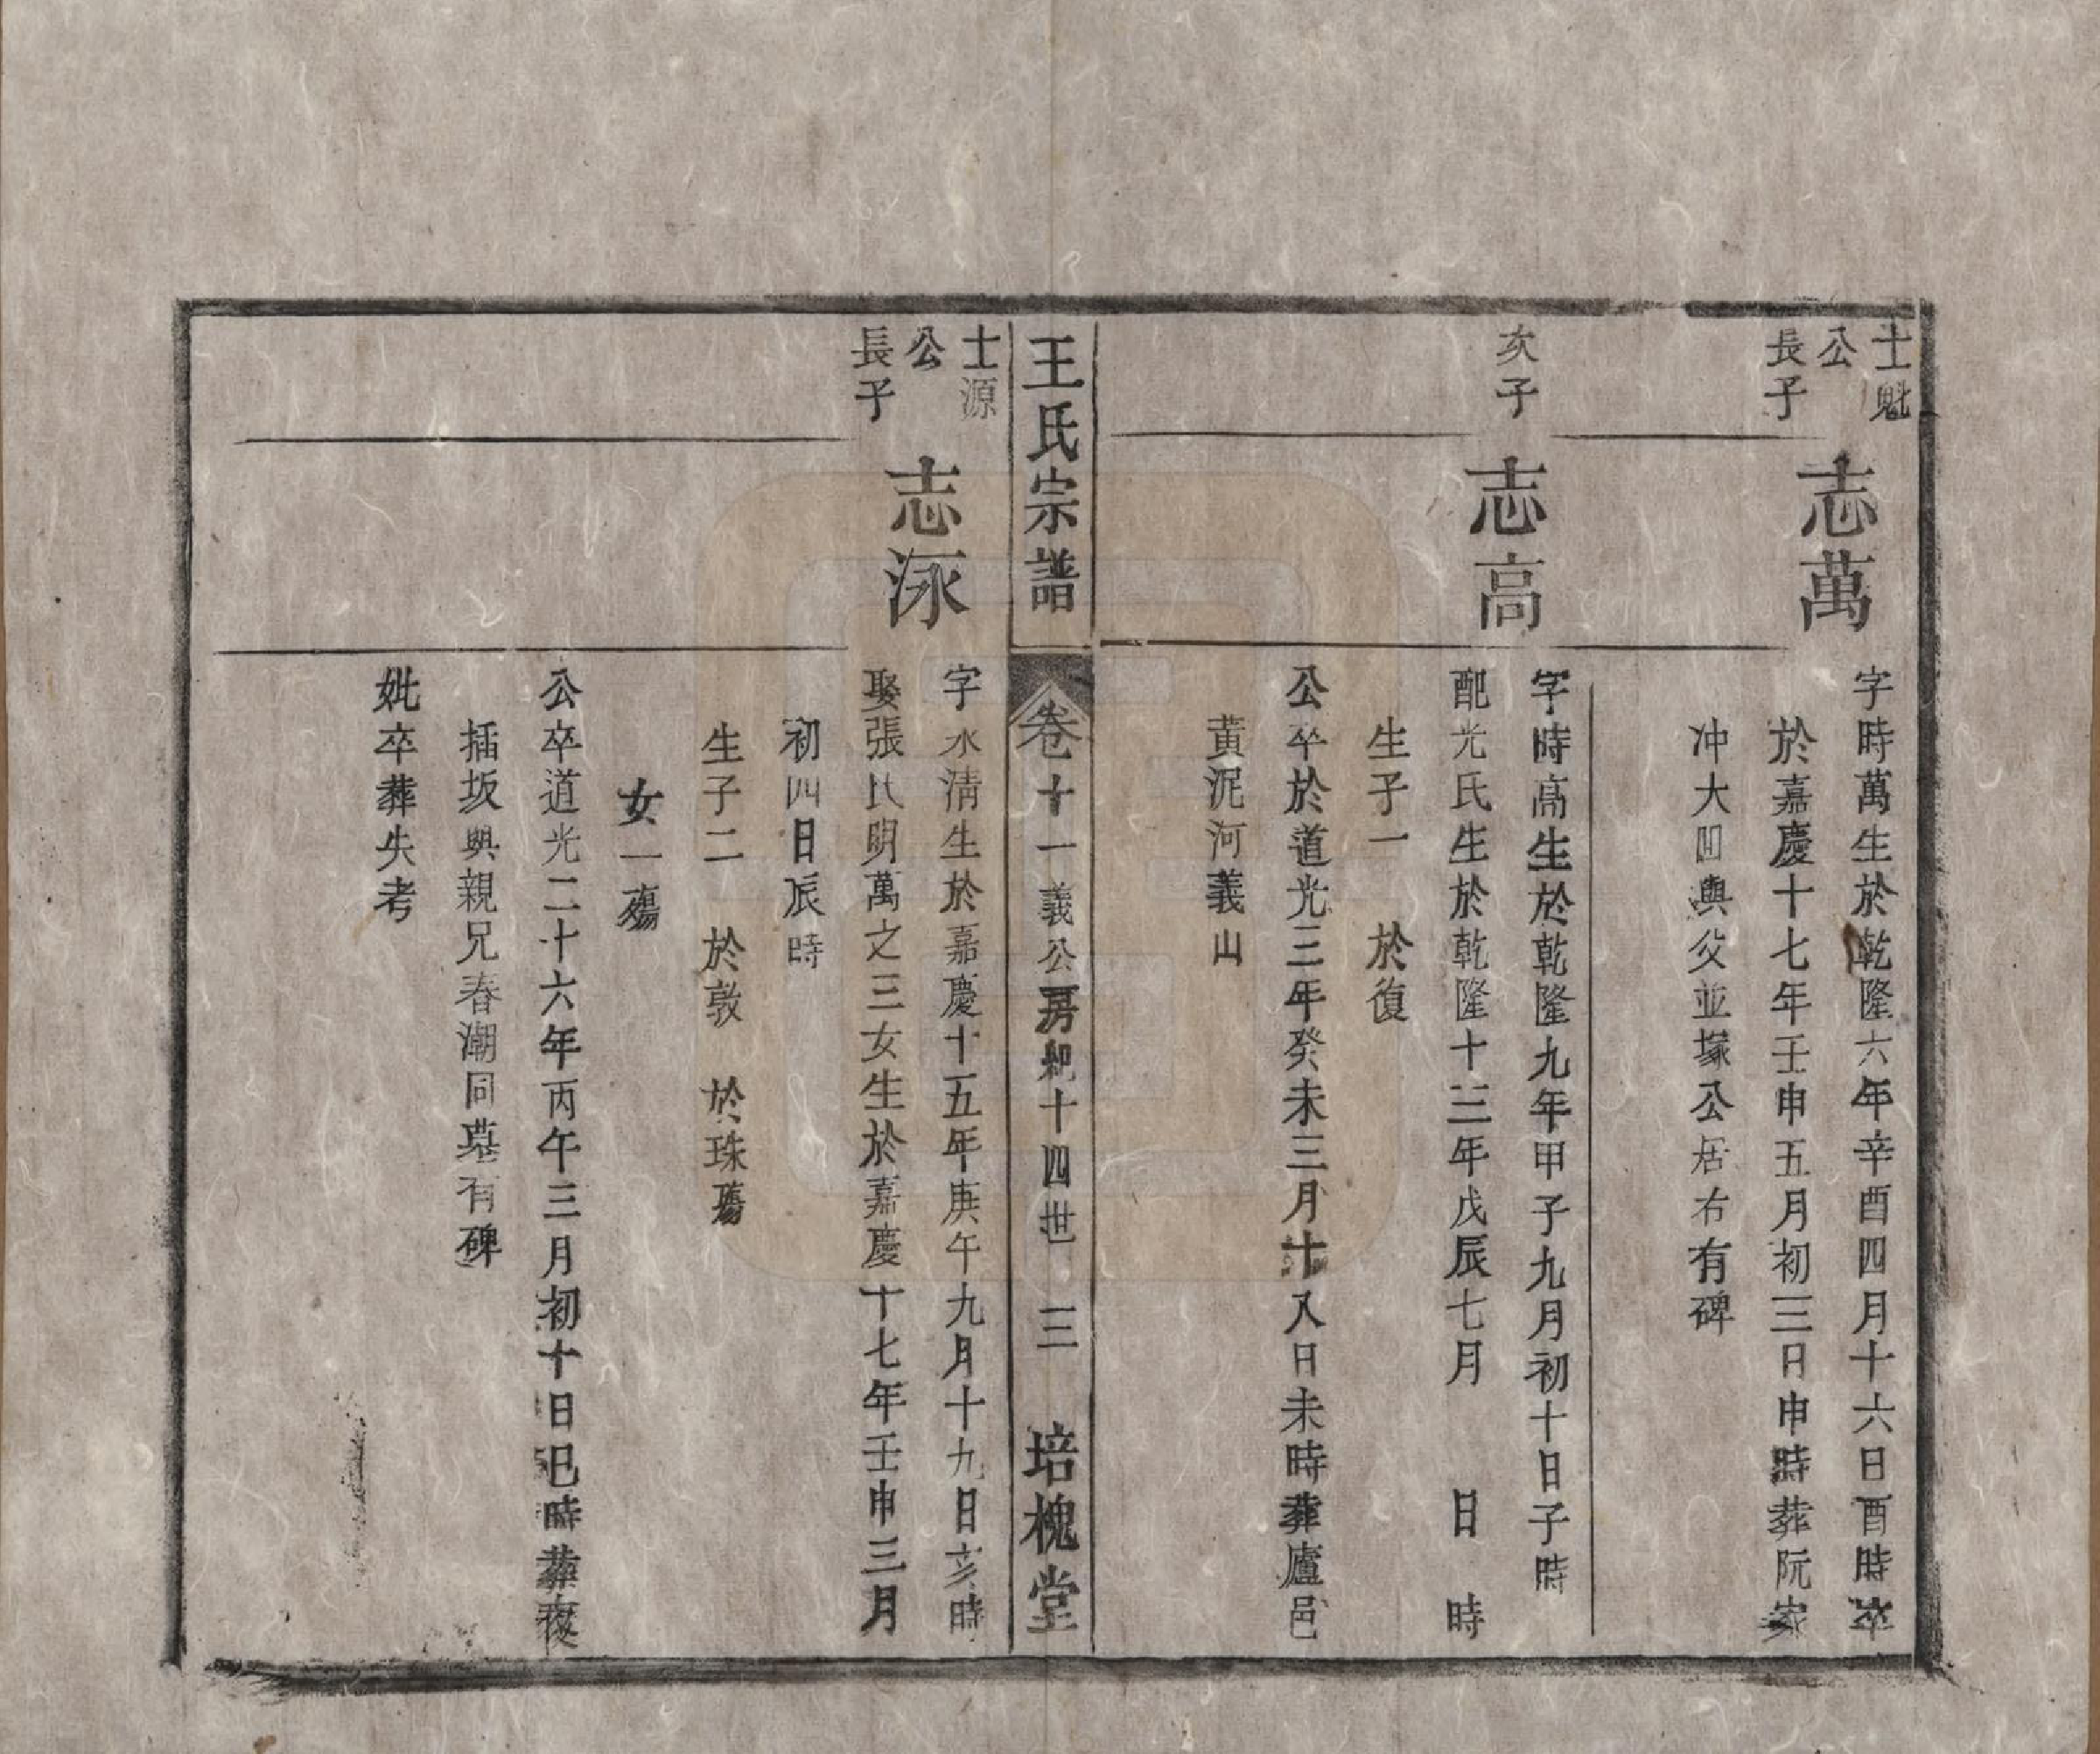 士魁
公
長子
志萬
字時萬生於乾隆六年辛酉四月十六日酉時卒
於嘉慶十七年壬申五月初三日申時葬阮家
冲大凹與父並塚公居右有碑
次子
志高
字時高生於乾隆九年甲子九月初十日子時
配光氏生於乾隆十三年戊辰七月　日　時
生子一　於復
公卒於道光三年癸未三月十八日未時葬廬邑
黃泥河義山
王氏宗譜　卷十一義公房起十四世　三　培槐堂
士源
公
長子
志泳
字水清生於嘉慶十五年庚午九月十九日亥時
娶張氏明萬之三女生於嘉慶十七年壬申三月
初四日辰時
生子二　於敦　於珠殤
女一殤
公卒道光二十六年丙午三月初十日巳時葬
插坂與親兄春潮同墓有碑
妣卒葬失考